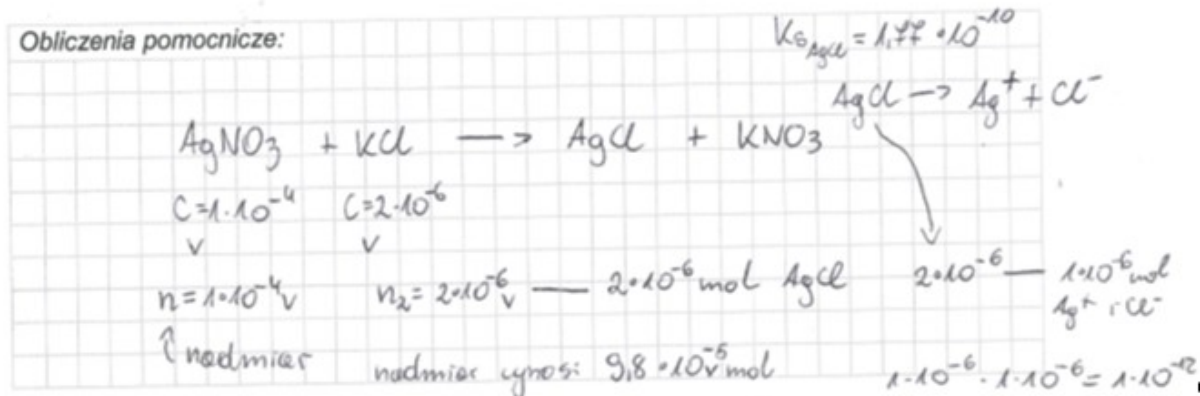 Obliczenia pomocnicze:
Ks AgCl = 1,77 · 10⁻¹⁰
AgCl → Ag⁺ + Cl⁻
AgNO₃ + KCl → AgCl + KNO₃
C=1·10⁻⁴ C=2·10⁻⁶
v v
n=1·10⁻⁴v n₂=2·10⁻⁶v — 2·10⁻⁶ mol AgCl 2·10⁻⁶ — 1·10⁻⁶ mol
Ag⁺ i Cl⁻
nadmiar nadmiar wynosi 9,8·10⁻⁵v mol 1·10⁻⁶ · 1·10⁻⁶ = 1·10⁻¹²